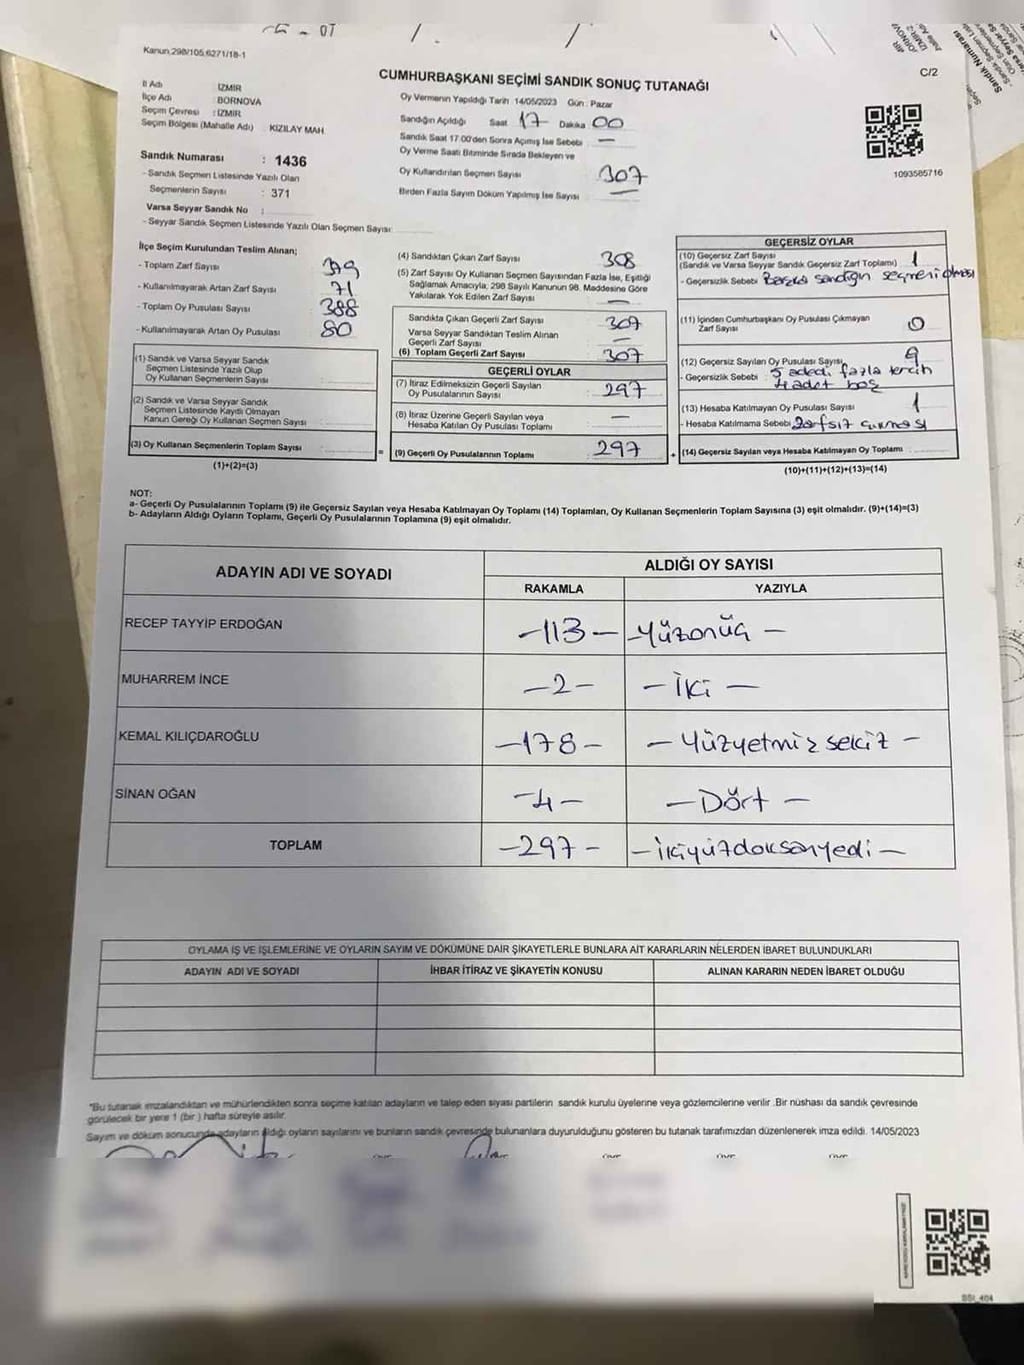 Kanun.298/105.6271/18-1
CUMHURBAŞKANI SEÇİMİ SANDIK SONUÇ TUTANAĞI
C/2
İl Adı : İZMİR
İlçe Adı : BORNOVA
Seçim Çevresi : İZMİR
Seçim Bölgesi (Mahalle Adı) : KIZILAY MAH.
Sandık Numarası : 1436
- Sandık Seçmen Listesinde Yazılı Olan
Seçmenlerin Sayısı : 371
Varsa Seyyar Sandık No :
- Seyyar Sandık Seçmen Listesinde Yazılı Olan Seçmen Sayısı:
Oy Vermenin Yapıldığı Tarih 14/05/2023 Gün : Pazar
Sandığın Açıldığı Saat 17 Dakika 00
Sandık Saat 17.00'den Sonra Açılmış İse Sebebi —
Oy Verme Saati Bitiminde Sırada Bekleyen ve
Oy Kullandırılan Seçmen Sayısı 307
Birden Fazla Sayım Döküm Yapılmış İse Sayısı —
1093585716
İlçe Seçim Kurulundan Teslim Alınan;
- Toplam Zarf Sayısı 379
- Kullanılmayarak Artan Zarf Sayısı 71
- Toplam Oy Pusulası Sayısı 388
- Kullanılmayarak Artan Oy Pusulası 80
(1) Sandık ve Varsa Seyyar Sandık
Seçmen Listesinde Yazılı Olup
Oy Kullanan Seçmenlerin Sayısı :
(2) Sandık ve Varsa Seyyar Sandık
Seçmen Listesinde Kayıtlı Olmayan
Kanun Gereği Oy Kullanan Seçmen Sayısı :
(3) Oy Kullanan Seçmenlerin Toplam Sayısı :
(1)+(2)=(3)
(4) Sandıktan Çıkan Zarf Sayısı 308
(5) Zarf Sayısı Oy Kullanan Seçmen Sayısından Fazla İse, Eşitliği
Sağlamak Amacıyla, 298 Sayılı Kanunun 98. Maddesine Göre
Yakılarak Yok Edilen Zarf Sayısı —
Sandıkta Çıkan Geçerli Zarf Sayısı 307
Varsa Seyyar Sandıktan Teslim Alınan
Geçerli Zarf Sayısı —
(6) Toplam Geçerli Zarf Sayısı 307
GEÇERLİ OYLAR
(7) İtiraz Edilmeksizin Geçerli Sayılan
Oy Pusulalarının Sayısı 297
(8) İtiraz Üzerine Geçerli Sayılan veya
Hesaba Katılan Oy Pusulası Toplamı —
= (9) Geçerli Oy Pusulalarının Toplamı 297 +
GEÇERSİZ OYLAR
(10) Geçersiz Zarf Sayısı
(Sandık ve Varsa Seyyar Sandık Geçersiz Zarf Toplamı) 1
- Geçersizlik Sebebi Başka sandığın seçmeni olması
(11) İçinden Cumhurbaşkanı Oy Pusulası Çıkmayan
Zarf Sayısı 0
(12) Geçersiz Sayılan Oy Pusulası Sayısı 9
- Geçersizlik Sebebi : 5 adedi fazla tercih
4 adet boş
(13) Hesaba Katılmayan Oy Pusulası Sayısı 1
- Hesaba Katılmama Sebebi Zarfsız çıkması
(14) Geçersiz Sayılan veya Hesaba Katılmayan Oy Toplamı :
(10)+(11)+(12)+(13)=(14)
NOT:
a- Geçerli Oy Pusulalarının Toplamı (9) ile Geçersiz Sayılan veya Hesaba Katılmayan Oy Toplamı (14) Toplamları, Oy Kullanan Seçmenlerin Toplam Sayısına (3) eşit olmalıdır. (9)+(14)=(3)
b- Adayların Aldığı Oyların Toplamı, Geçerli Oy Pusulalarının Toplamına (9) eşit olmalıdır.
ADAYIN ADI VE SOYADI ALDIĞI OY SAYISI
RAKAMLA YAZIYLA
RECEP TAYYİP ERDOĞAN –113– –Yüzonüç–
MUHARREM İNCE –2– –İki–
KEMAL KILIÇDAROĞLU –178– –Yüzyetmiş sekiz–
SİNAN OĞAN –4– –Dört–
TOPLAM –297– –İkiyüzdoksanyedi–
OYLAMA İŞ VE İŞLEMLERİNE VE OYLARIN SAYIM VE DÖKÜMÜNE DAİR ŞİKAYETLERLE BUNLARA AİT KARARLARIN NELERDEN İBARET BULUNDUKLARI
ADAYIN ADI VE SOYADI İHBAR İTİRAZ VE ŞİKAYETİN KONUSU ALINAN KARARIN NEDEN İBARET OLDUĞU
*Bu tutanak imzalandıktan ve mühürlendikten sonra seçime katılan adayların ve talep eden siyasi partilerin sandık kurulu üyelerine veya gözlemcilerine verilir .Bir nüshası da sandık çevresinde
görülecek bir yere 1 (bir ) hafta süreyle asılır.
Sayım ve döküm sonucunda adayların aldığı oyların sayılarını ve bunların sandık çevresinde bulunanlara duyurulduğunu gösteren bu tutanak tarafımızdan düzenlenerek imza edildi. 14/05/2023